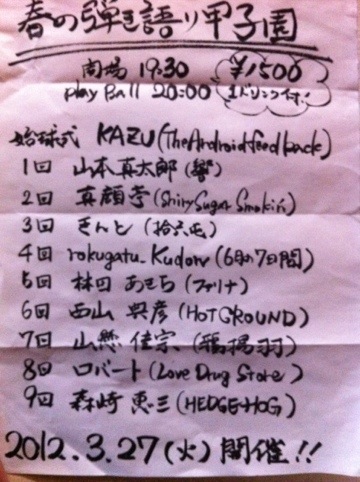 春の弾き語り甲子園
開場 19:30 ¥1500
play Ball 20:00 1ドリンク付!
始球式 KAZU (TheAndroidfeedback)
1回 山本真太郎 (響)
2回 真顔 (ShinySugar Smokin')
3回 きんと (拾六屯)
4回 rokugatu_Kudow (6月の7日間)
5回 林田 あきら (ファリナ)
6回 西山 典彦 (HOTGROUND)
7回 山熊 佳宗 (鴉揚羽)
8回 ロバート (Love Drug Store)
9回 森崎 恵三 (HEDGE-HOG)
2012.3.27(火) 開催!!